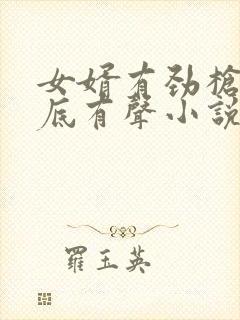 女婿有劲槍
底有聲小説
羅玉英